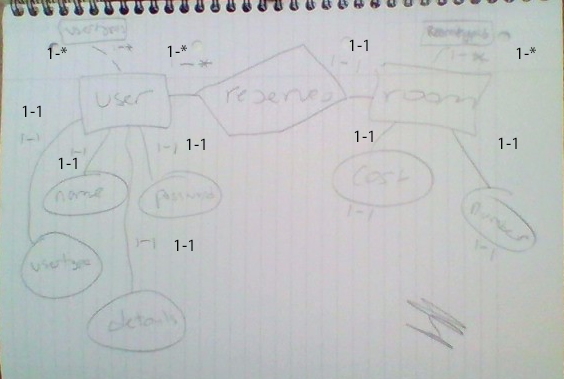 usertype
1-*
1-*
1-*
1-*
1-1
1-1
1-*
1-*
user
reserves
room
1-1
1-1
1-1
1-1
1-1
1-1
1-1
1-1
name
password
cost
1-1
number
1-1
usertype
1-1
1-1
details